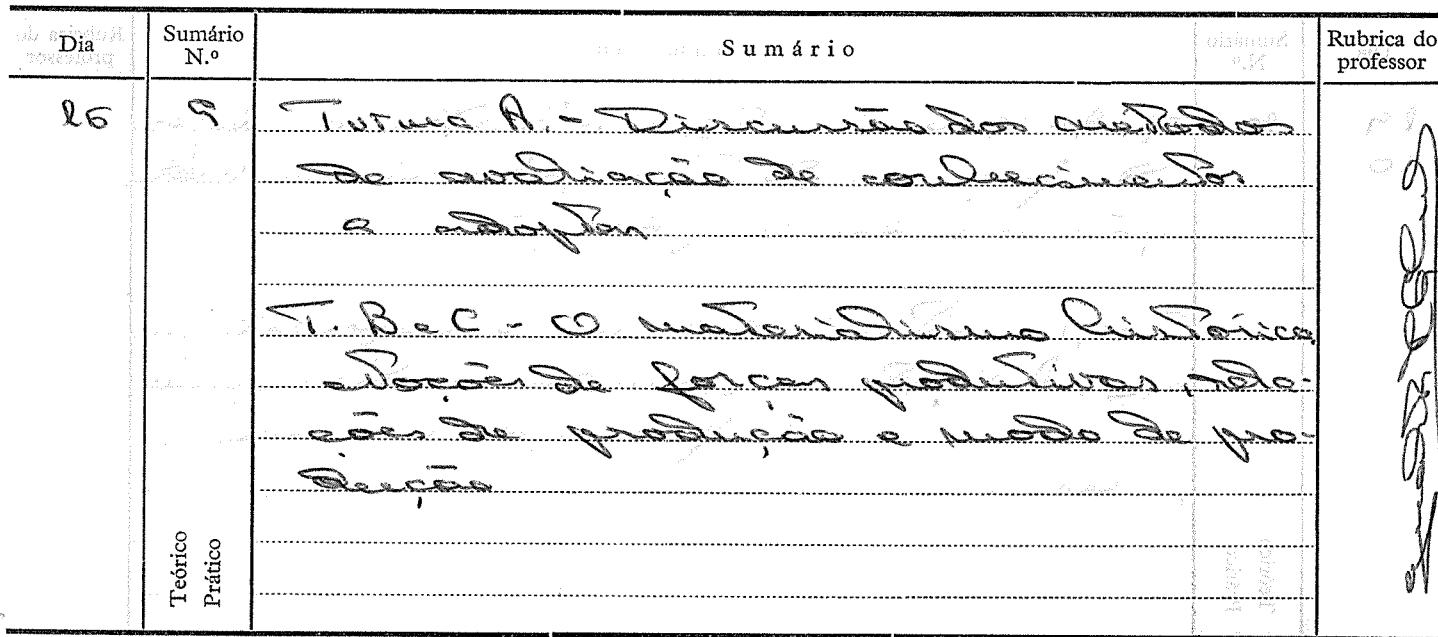 Dia Sumário N.º Sumário Rubrica do professor
26 5 Turma A. - Discussão dos métodos
de avaliação de conhecimentos
a adoptar
T. B e C - O materialismo histórico,
Noções de forças produtivas, rela-
ções de produção e modo de pro-
dução
Teórico
Prático